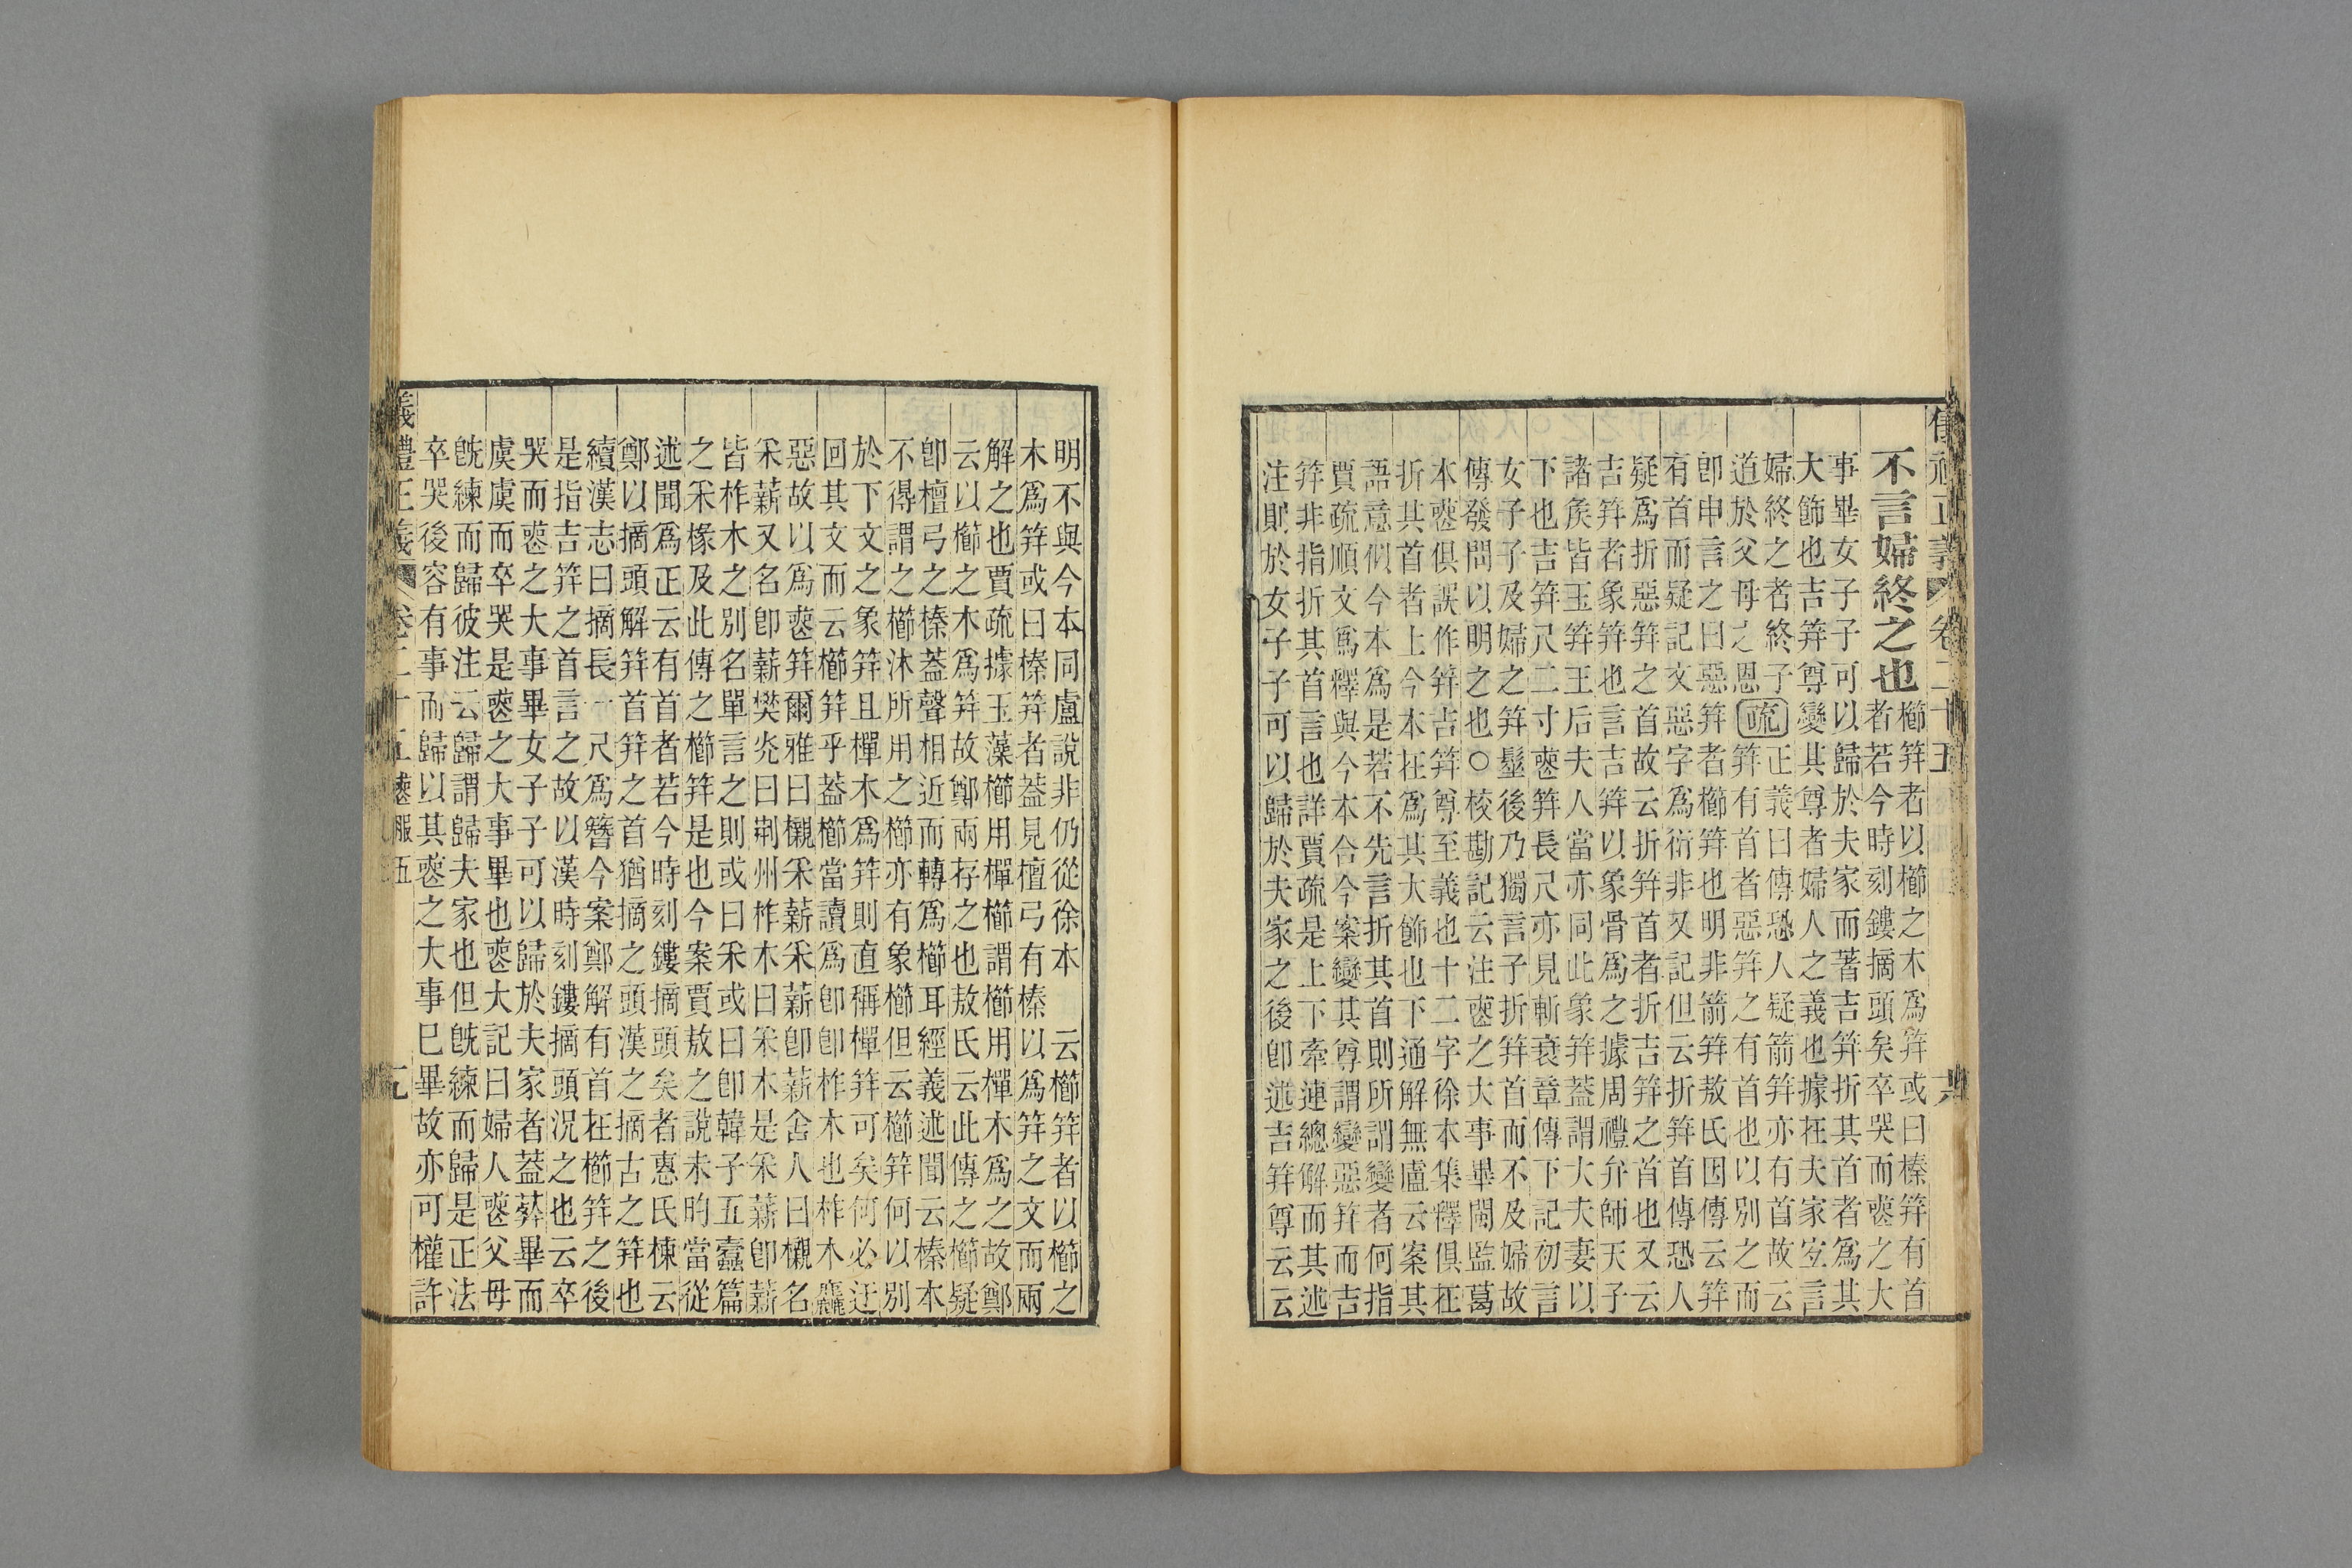 儀禮正義 卷二十五 六
不言婦終之也
櫛笄者以櫛之木為笄或曰榛笄有首
者若今時刻鏤摘頭矣卒哭而喪之大
事畢女子子可以歸於夫家而著吉笄折其首者為其
大飾也吉笄尊變其尊者婦人之義也據在夫家宐言
婦終之者終子
道於父母之恩
疏
正義曰傳恐人疑箭笄亦有首故云
笄有首者惡笄之有首也以別之而
卽申言之曰惡笄者櫛笄也明非箭笄敖氏因傳云笄
有首而疑記文惡字為衍非又記但云折笄首傳恐人
疑為折惡笄之首故云折笄首者折吉笄之首也又云
吉笄者象笄也言吉笄以象骨為之據周禮弁師天子
諸矦皆玉笄王后夫人當亦同此象笄蓋謂大夫妻以
下也吉笄尺二寸喪笄長尺亦見斬衰章傳下記初言
女子子及婦之笄髽後乃獨言子折笄首而不及婦故
傳發問以明之也○校勘記云注喪之大事畢閩監葛
本喪俱誤作笄吉笄尊至義也十二字徐本集釋俱在
折其首者上今本在為其大飾也下通解無盧云案其
語意似今本為是若不先言折其首則所謂變者何指
賈疏順文為釋與今本合今案變其尊謂變惡笄而吉
笄非指折其首言也詳賈疏是上下牽連總解而其述
注則於女子子可以歸於夫家之後卽述吉笄尊云云
明不與今本同盧說非仍從徐本 云櫛笄者以櫛之
木為笄或曰榛笄者蓋見檀弓有榛以為笄之文而兩
解之也賈疏據玉藻櫛用樿櫛謂櫛用樿木為之故鄭
云以櫛之木為笄故鄭兩存之也敖氏云此傳之櫛疑
卽檀弓之榛蓋聲相近而轉為櫛耳經義述聞云榛本
不得謂之櫛沐所用之櫛亦有象櫛但云櫛笄何以別
於下文之象笄且樿木為笄則直稱樿笄可矣何必迂
回其文而云櫛笄乎蓋櫛當讀為卽卽柞木也柞木麤
惡故以為喪笄爾雅曰櫬采薪采薪卽薪舍人曰櫬名
采薪又名卽薪樊光曰荆州柞木曰采木是采薪卽薪
皆柞木之別名單言之則或曰采或曰卽韓子五蠹篇
之采椽及此傳之櫛笄是也今案賈敖之說未昀當從
述聞為正云有首者若今時刻鏤摘頭矣者惠氏棟云
鄭以摘頭解笄首笄之首猶摘之頭漢之摘古之笄也
續漢志曰摘長一尺為簪今案鄭解有首在櫛笄之後
是指吉笄之首言之故以漢時刻鏤摘頭況之也云卒
哭而喪之大事畢女子子可以歸於夫家者蓋葬畢而
虞虞而卒哭是喪之大事畢也喪大記曰婦人喪父母
旣練而歸彼注云歸謂歸夫家也但旣練而歸是正法
卒哭後容有事而歸以其喪之大事巳畢故亦可權許
儀禮正義 卷二十五 喪服五